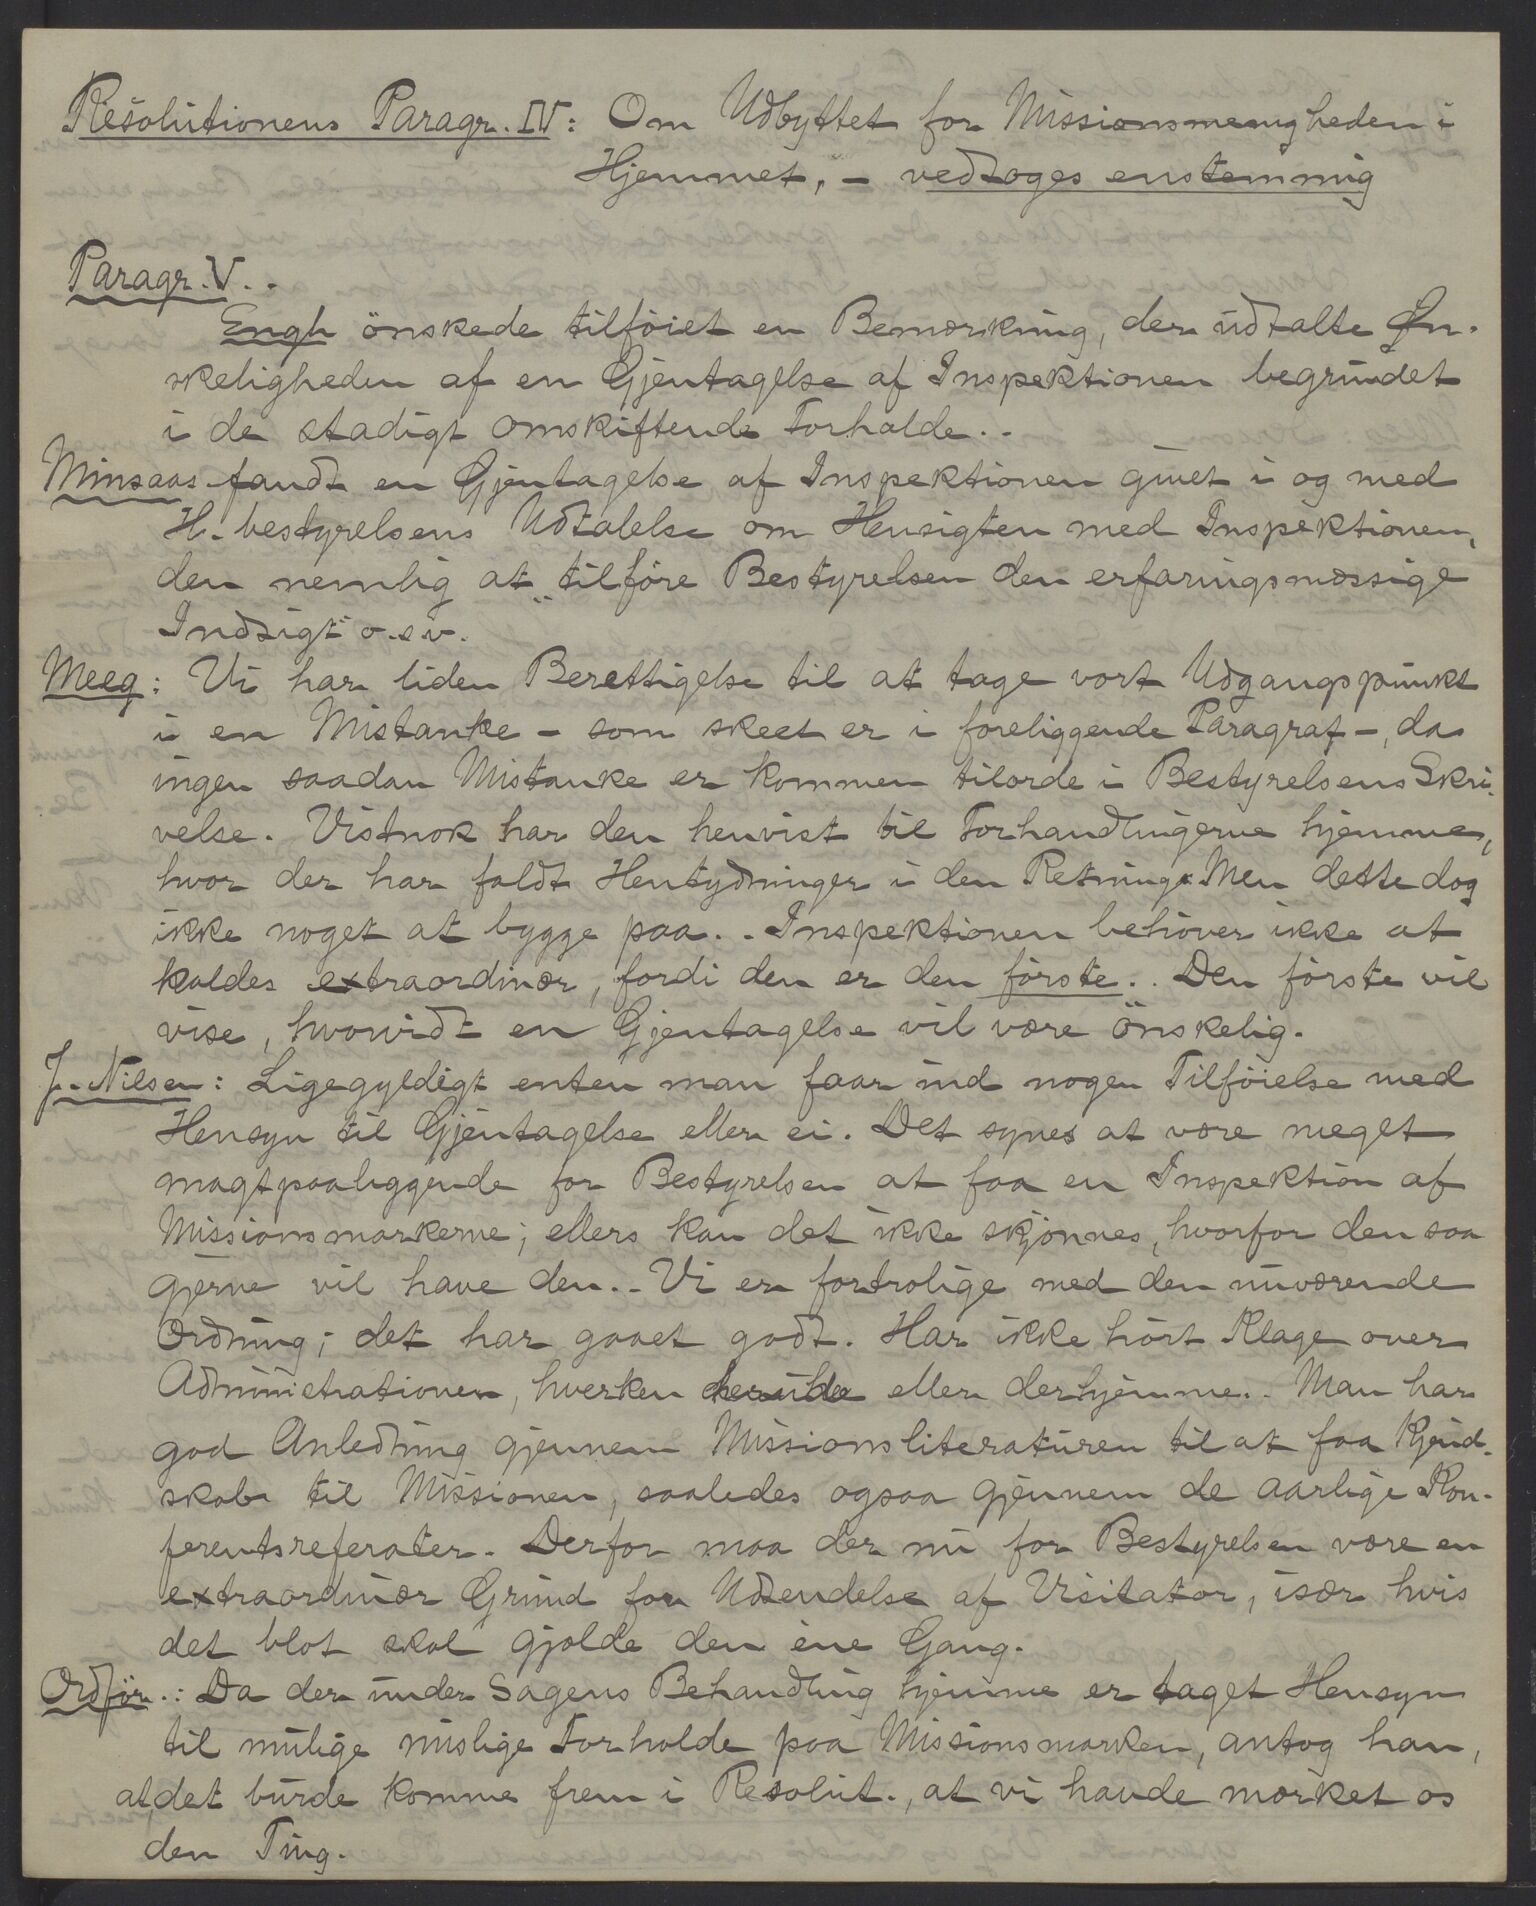 Resolutionens Paragr. IV: Om Udbyttet for Missionsmenigheden i
Hjemmet, - vedtoges enstemmig
Paragr. V..
Engh önskede tilföiet en Bemærkning, der udtalte Øn-
skeligheden af en Gjentagelse af Inspektionen begrundet
i de stadigt omskiftende Forholde..
Minsaas fandt en Gjentagelse af Inspektionen givet i og med
H.bestyrelsens Udtalelse om Hensigten med Inspektionen,
den nemlig at "tilföre Bestyrelsen den erfaringsmæssige
Indsigt" o.s.v.
Meeg: Vi har liden Berettigelse til at tage vort Udgangspunkt
i en Mistanke - som skeet er i foreliggende Paragraf -, da
ingen saadan Mistanke er kommen tilorde i Bestyrelsens Skri-
velse. Vistnok har den henvist til Forhandlingerne hjemme,
hvor der har faldt Hentydninger i den Retning. Men dette dog
ikke noget at bygge paa.. Inspektionen behöver ikke at
kaldes extraordinær, fordi den er den förste.. Den förste vil
vise, hvorvidt en Gjentagelse vil være önskelig.
J. Nilsen: Ligegyldigt enten man faar ind nogen Tilföielse med
Hensyn til Gjentagelse eller ei. Det synes at være meget
magtpaaliggende for Bestyrelsen at faa en Inspektion af
Missionsmarkerne; ellers kan det ikke skjönnes, hvorfor den saa
gjerne vil have den.. Vi er fortrolige med den nuværende
Ordning; det har gaaet godt. Har ikke hört Klage over
Administrationen, hverken herude eller derhjemme.. Man har
god Anledning gjennem Missionsliteraturen til at faa Kjend-
skab til Missionen, saaledes ogsaa gjennem de aarlige Kon-
ferentsreferater. Derfor maa der nu for Bestyrelsen være en
extraordinær Grund for Udsendelse af Visitator, især hvis
det blot skal gjælde den ene Gang.
Ordför.: Da der under Sagens Behandling hjemme er taget Hensyn
til mulige mislige Forholde paa Missionsmarken, antog han,
at det burde komme frem i Resolut., at vi havde mærket os
den Ting.